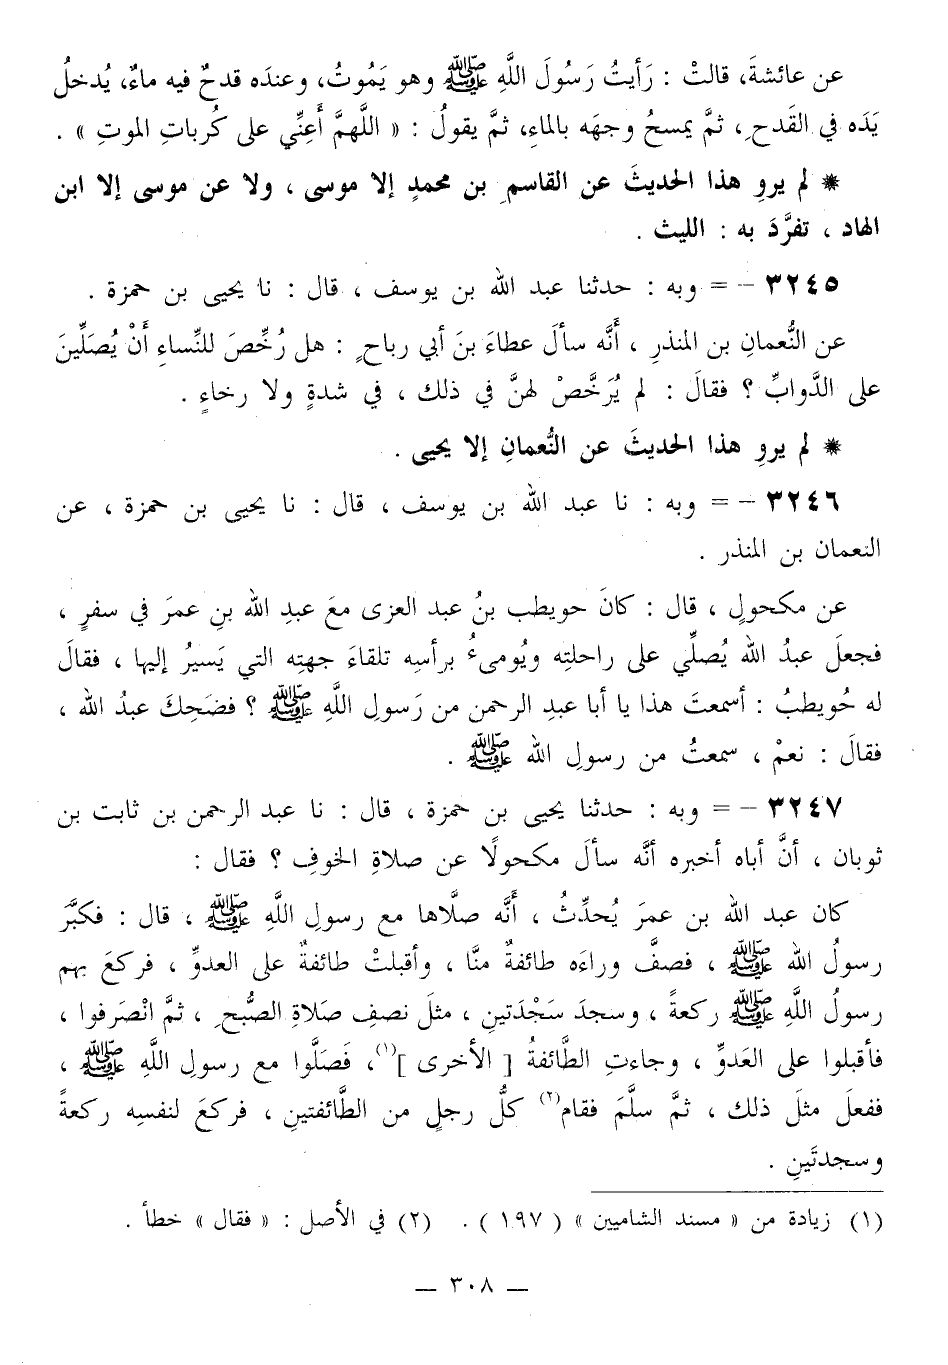 عن عائشةَ، قالتْ : رَأيتُ رَسُولَ اللَّهِ ﷺ وهو يَمُوتُ، وعندَه قدحٌ فيه ماءٌ، يُدخلُ
يَدَه في القَدحِ، ثمَّ يمسحُ وجهَه بالماءِ، ثمَّ يقولُ : « اللَّهمَّ أَعِنِّي على كُرباتِ الموتِ » .
* لم يروِ هذا الحديثَ عن القاسمِ بن محمدٍ إلا موسى ، ولا عن موسى إلا ابن
الهاد ، تفرَّدَ به : الليث .
٣٢٤٥ - = وبه : حدثنا عبد الله بن يوسف ، قال : نا يحيى بن حمزة .
عن النُّعمانِ بن المنذرِ ، أَنَّه سألَ عطاءَ بنَ أبي رباحٍ : هل رُخِّصَ للنِّساءِ أَنْ يُصَلِّينَ
على الدَّوابِّ ؟ فقالَ : لم يُرَخَّصْ لهنَّ في ذلك ، في شدةٍ ولا رخاءٍ .
* لم يروِ هذا الحديثَ عن النُّعمانِ إلا يحيى .
٣٢٤٦ - = وبه : نا عبد الله بن يوسف ، قال : نا يحيى بن حمزة ، عن
النعمان بن المنذر .
عن مكحولٍ ، قال : كانَ حويطب بنُ عبد العزى معَ عبدِ الله بنِ عمرَ في سفرٍ ،
فجعلَ عبدُ الله يُصلِّي على راحلتِه ويُومىءُ برأسِه تلقاءَ جهتِه التي يَسيرُ إليها ، فقالَ
له حُويطبُ : أسمعتَ هذا يا أبا عبدِ الرحمن من رَسولِ اللَّهِ ﷺ ؟ فضَحِكَ عبدُ الله ،
فقالَ : نعمْ ، سمعتُ من رسولِ الله ﷺ .
٣٢٤٧ - = وبه : حدثنا يحيى بن حمزة ، قال : نا عبد الرحمن بن ثابت بن
ثوبان ، أنَّ أباه أخبره أنَّه سألَ مكحولًا عن صلاةِ الخوفِ ؟ فقال :
كان عبد الله بن عمرَ يُحدِّثُ ، أَنَّه صلَّاها مع رسولِ اللَّهِ ﷺ ، قال : فكبَّرَ
رسولُ الله ﷺ ، فصفَّ وراءَه طائفةٌ منَّا ، وأقبلتْ طائفةٌ على العدوِّ ، فركعَ بهم
رسولُ اللَّهِ ﷺ ركعةً ، وسجدَ سَجْدَتينِ ، مثلَ نصفِ صَلاةِ الصُّبحِ ، ثمَّ انْصَرفوا ،
فأقبلوا على العَدوِّ ، وجاءتِ الطَّائفةُ [ الأخرى ](١)، فَصَلَّوا مع رسولِ اللَّهِ ﷺ ،
ففعلَ مثلَ ذلك ، ثمَّ سلَّمَ فقام(٢) كلُّ رجلٍ من الطَّائفتينِ ، فركعَ لنفسِه ركعةً
وسجدتَينِ .
(١) زيادة من « مسند الشاميين » ( ١٩٧ ) . (٢) في الأصل : « فقال » خطأ .
— ٣٠٨ —